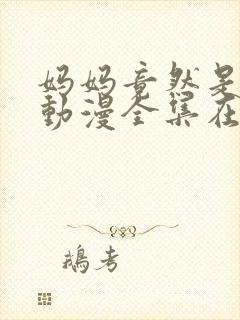 妈妈竟然是
動漫全集在
鵝考